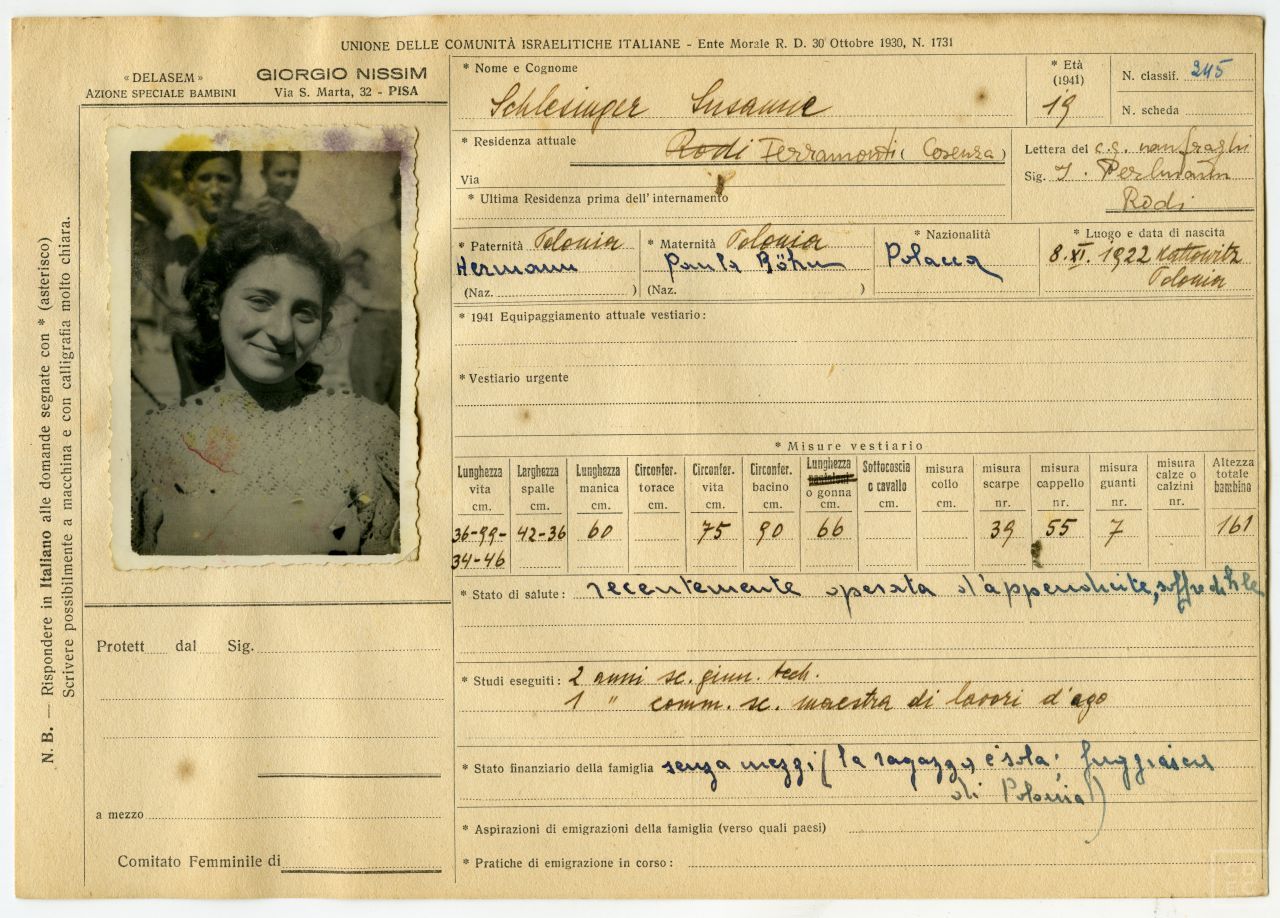 UNIONE DELLE COMUNITÀ ISRAELITICHE ITALIANE - Ente Morale R. D. 30 Ottobre 1930, N. 1731
« DELASEM »
AZIONE SPECIALE BAMBINI
GIORGIO NISSIM
Via S. Marta, 32 - PISA
* Nome e Cognome
Schlesinger Susanne
* Età
(1941)
19
N. classif. 245
N. scheda
* Residenza attuale Rodi Ferramonti (Cosenza)
Via
* Ultima Residenza prima dell'internamento
Lettera del c.s. naufraghi
Sig. J. Perlmann
Rodi
* Paternità Polonia
Hermann
(Naz. )
* Maternità Polonia
Paula Böhm
(Naz. )
* Nazionalità
Polacca
* Luogo e data di nascita
8. XI. 1922 Kattowitz
Polonia
* 1941 Equipaggiamento attuale vestiario:
* Vestiario urgente
* Misure vestiario
Lunghezza vita cm. Larghezza spalle cm. Lunghezza manica cm. Circonfer. torace cm. Circonfer. vita cm. Circonfer. bacino cm. Lunghezza o gonna cm. Sottocoscia o cavallo cm. misura collo cm. misura scarpe nr. misura cappello nr. misura guanti nr. misura calze o calzini nr. Altezza totale bambino
36-99- 42-36 60 75 90 66 39 55 7 161
34-46
* Stato di salute: recentemente operata d'appendicite, soffre di
* Studi eseguiti: 2 anni sc. ginn. tech.
1 " comm. sc. maestra di lavori d'ago
* Stato finanziario della famiglia senza mezzi (la ragazza è sola; fuggiasca
di Polonia)
* Aspirazioni di emigrazioni della famiglia (verso quali paesi)
* Pratiche di emigrazione in corso:
Protett dal Sig.
a mezzo
Comitato Femminile di
N. B. — Rispondere in Italiano alle domande segnate con * (asterisco)
Scrivere possibilmente a macchina e con calligrafia molto chiara.
CDEC